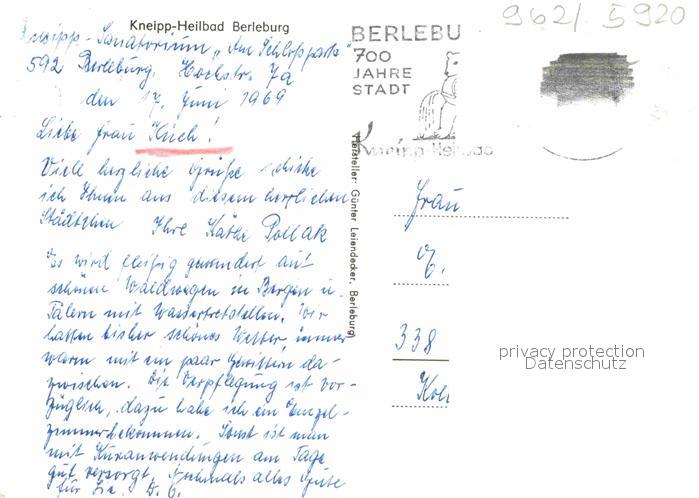 Kneipp-Heilbad Berleburg
Kneipp-Sanatorium „Am Schloßpark"
592 Berleburg, Hochstr. 7a
den 17. Juni 1969
Liebe Frau Kuch!
Viele herzliche Grüße schicke
ich Ihnen aus diesem herrlichen
Städtchen Ihre Käthe Pollak
Es wird fleißig gewandert auf
schönen Waldwegen in Bergen u.
Tälern mit Wassertretstellen. Wir
hatten bisher schönes Wetter, immer
warm mit ein paar Gewittern da-
zwischen. Die Verpflegung ist vor-
züglich, dazu habe ich ein Einzel-
zimmer bekommen. Sonst ist man
mit Kuranwendungen am Tage
gut versorgt. Nochmals alles Gute
für Sie. D. O.
Hersteller: Günter Leiendecker, Berleburg
962/5920
BERLEBU
700
JAHRE
STADT
Kneipp Heilbad
Frau
338
privacy protection
Datenschutz